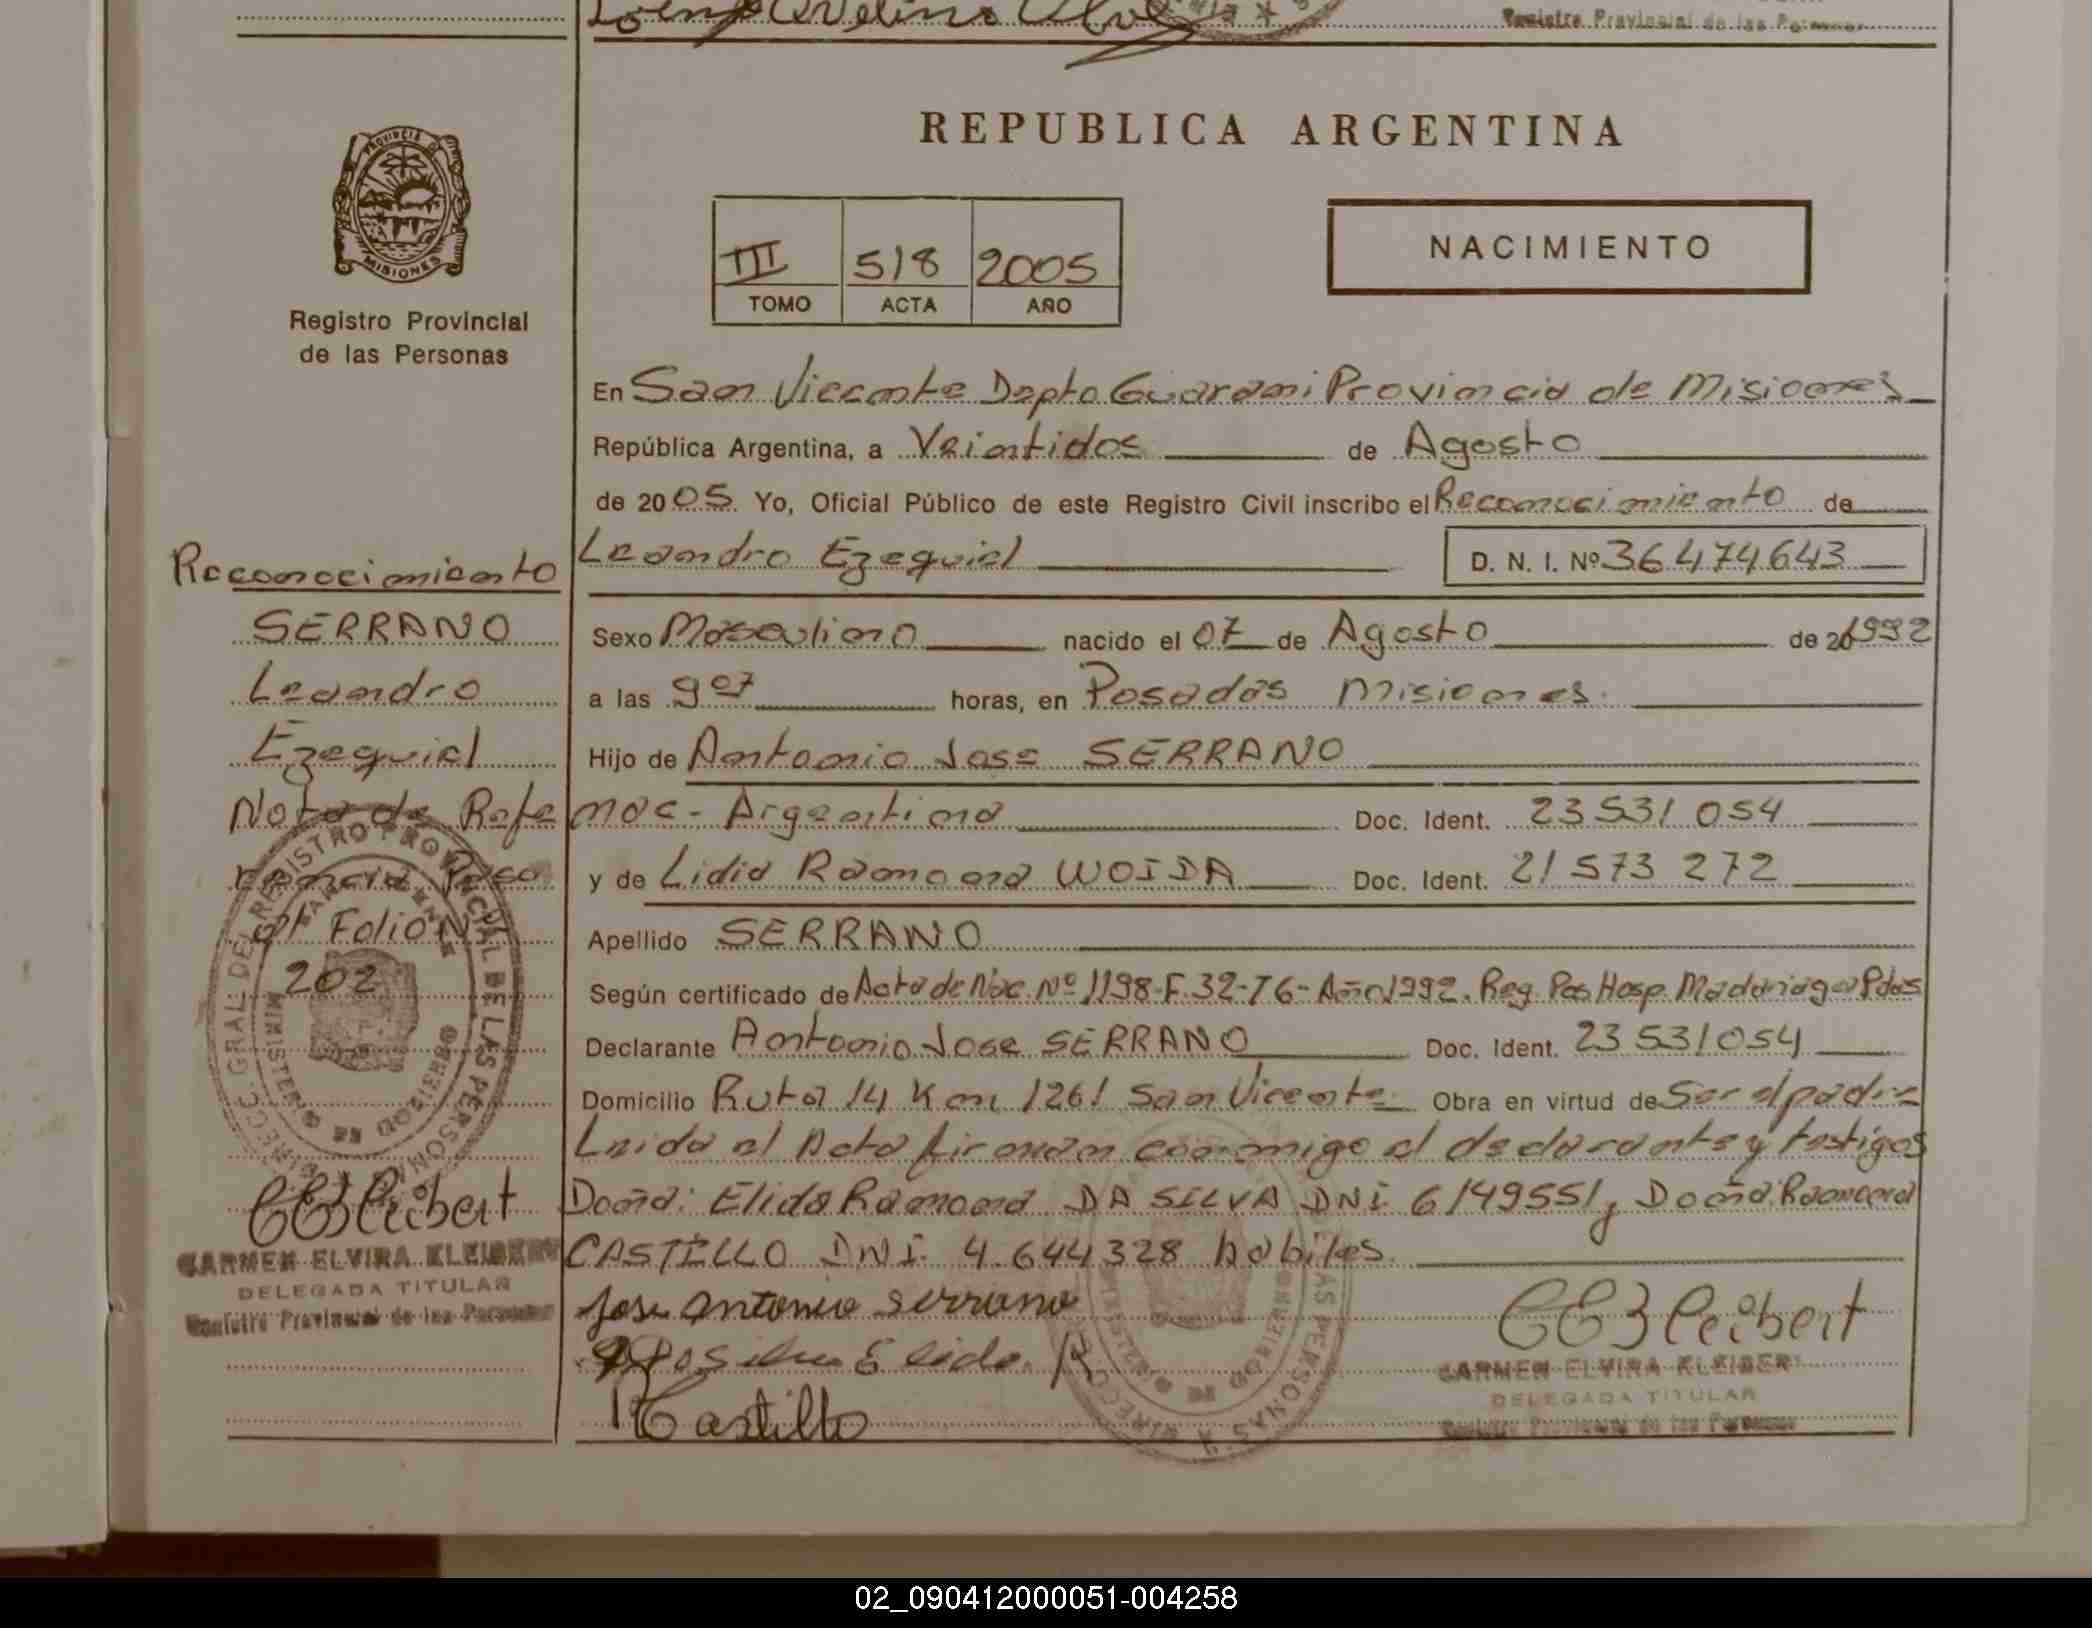 Registro Provincial de las Personas
PROVINCIA DE
MISIONES
Registro Provincial
de las Personas
REPUBLICA ARGENTINA
III 518 2005
TOMO ACTA AÑO
NACIMIENTO
En San Vicente Depto Guarani Provincia de Misiones
República Argentina, a Veintidos de Agosto
de 2005 Yo, Oficial Público de este Registro Civil inscribo el Reconocimiento de
Leandro Ezequiel D. N. I. Nº 36474643
Sexo Masculino nacido el 07 de Agosto de 20 1992
a las 9 07 horas, en Posadas Misiones
Hijo de Antonio Jose SERRANO
nac - Argentina Doc. Ident. 23531054
y de Lidia Ramona WOIDA Doc. Ident. 21573272
Apellido SERRANO
Según certificado de Acta de Nac. Nº 1198-F.32-T6-Año 1992. Reg. Pcs Hosp. Madariaga Pdas
Declarante Antonio Jose SERRANO Doc. Ident. 23531054
Domicilio Ruta 14 Km 1261 San Vicente Obra en virtud de Ser el padre
Leida el Acta firman conmigo el declarante y testigos
Doña: Elida Ramona DA SILVA DNI 6149551, Doña: Ramona
CASTILLO DNI. 4.644328 habiles.
Jose Antonio Serrano
Elida R
R Castillo
CARMEN ELVIRA KLEIBERT
DELEGADA TITULAR
Registro Provincial de las Personas
Reconocimiento
SERRANO
Leandro
Ezequiel
Nota de Refe
rencia Pasa
al Folio Nº
202
CARMEN ELVIRA KLEIBERT
DELEGADA TITULAR
Registro Provincial de las Personas
02_090412000051-004258